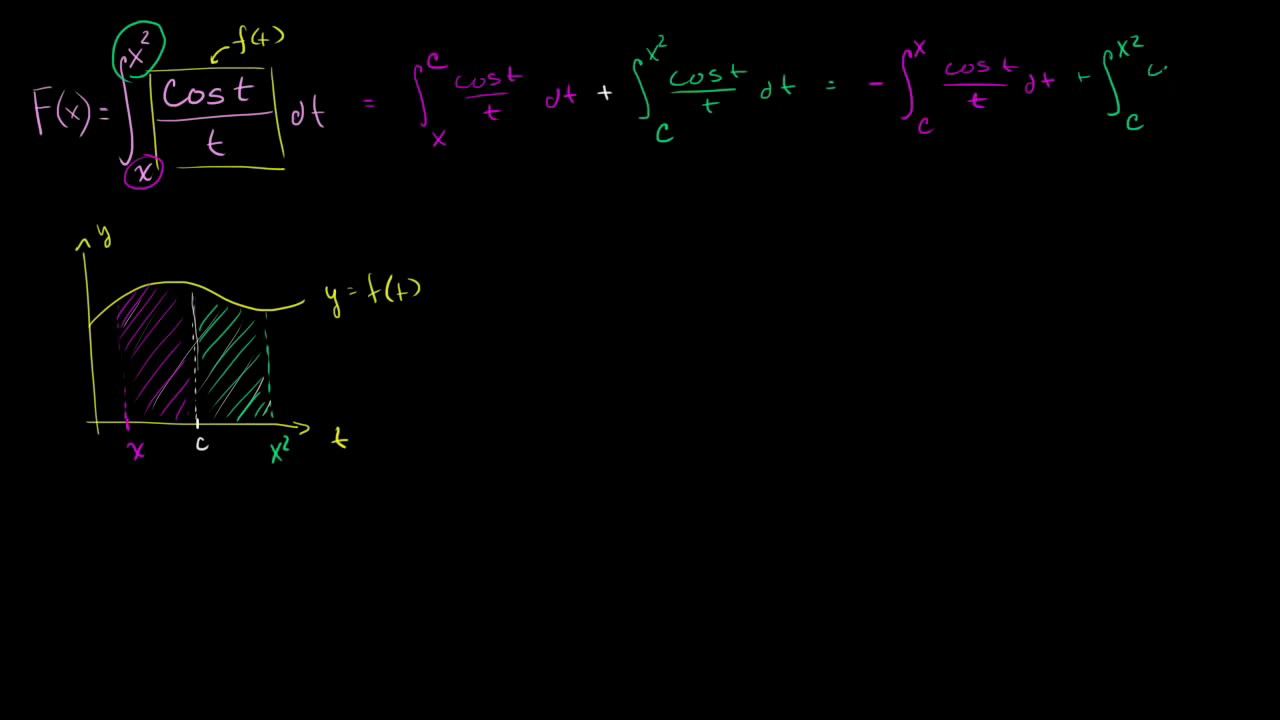 f(t)
F(x) = ∫ₓ^x² cos t / t dt = ∫ₓ^c cos t / t dt + ∫_c^x² cos t / t dt = - ∫_c^x cos t / t dt + ∫_c^x² c
y
y = f(t)
x c x² t